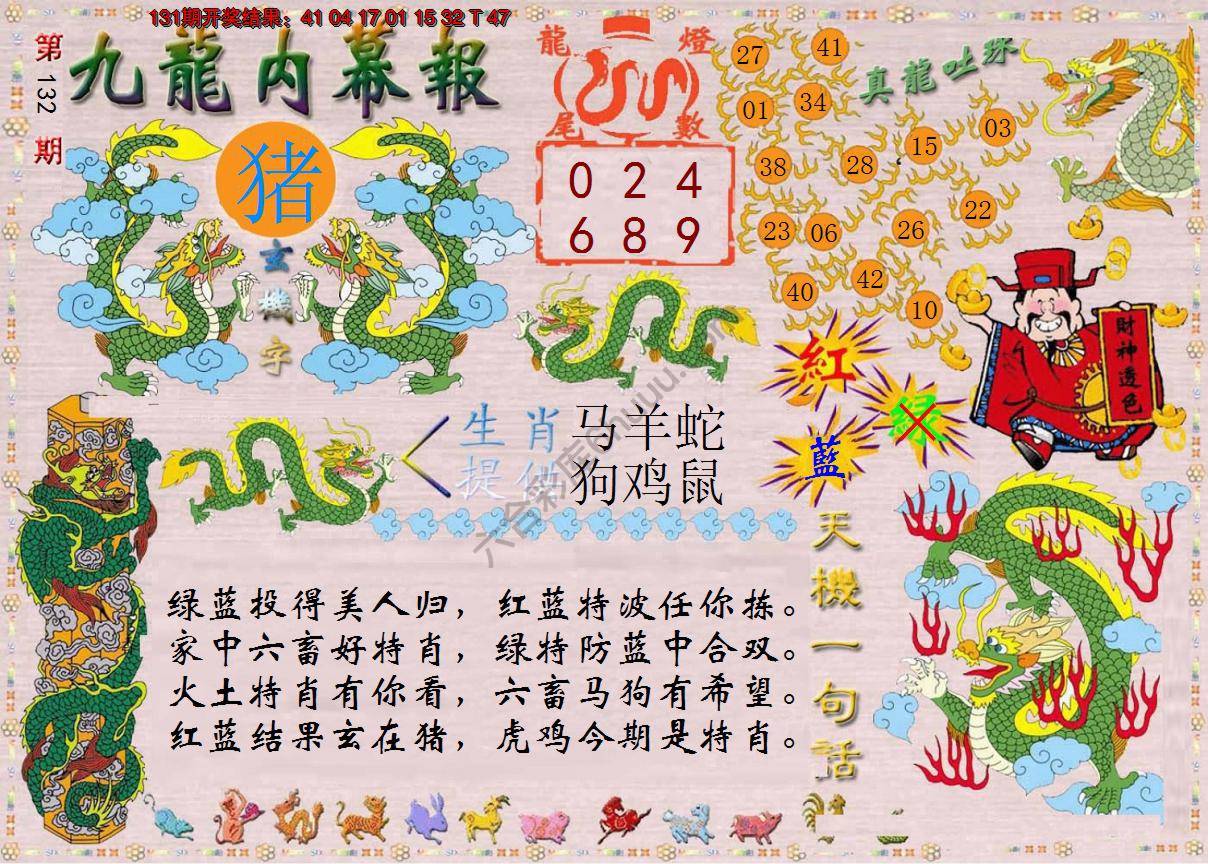 131期开奖结果：41 04 17 01 15 32 T 47
第132期
九龍内幕報
猪
玄機字
龍燈
尾數
0 2 4
6 8 9
真龍吐珠
27 41
01 34
15 03
38 28
22
23 06 26
42
40 10
財神透色
紅
绿
藍
生肖 马羊蛇
提供 狗鸡鼠
天機一句話
绿蓝投得美人归，红蓝特波任你拣。
家中六畜好特肖，绿特防蓝中合双。
火土特肖有你看，六畜马狗有希望。
红蓝结果玄在猪，虎鸡今期是特肖。